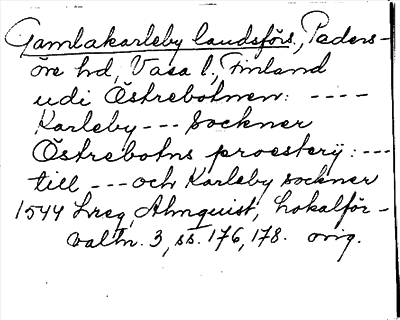 Gamlakarleby landsförs., Peders-
öre hd, Vasa l., Finland
udi Östrebotnen: ----
Karleby --- Sockner
Östrebotns proesterij: ---
till --- och Karleby sockner
1544 Lreg, Almquist, Lokalför-
valtn. 3, ss. 176, 178. orig.